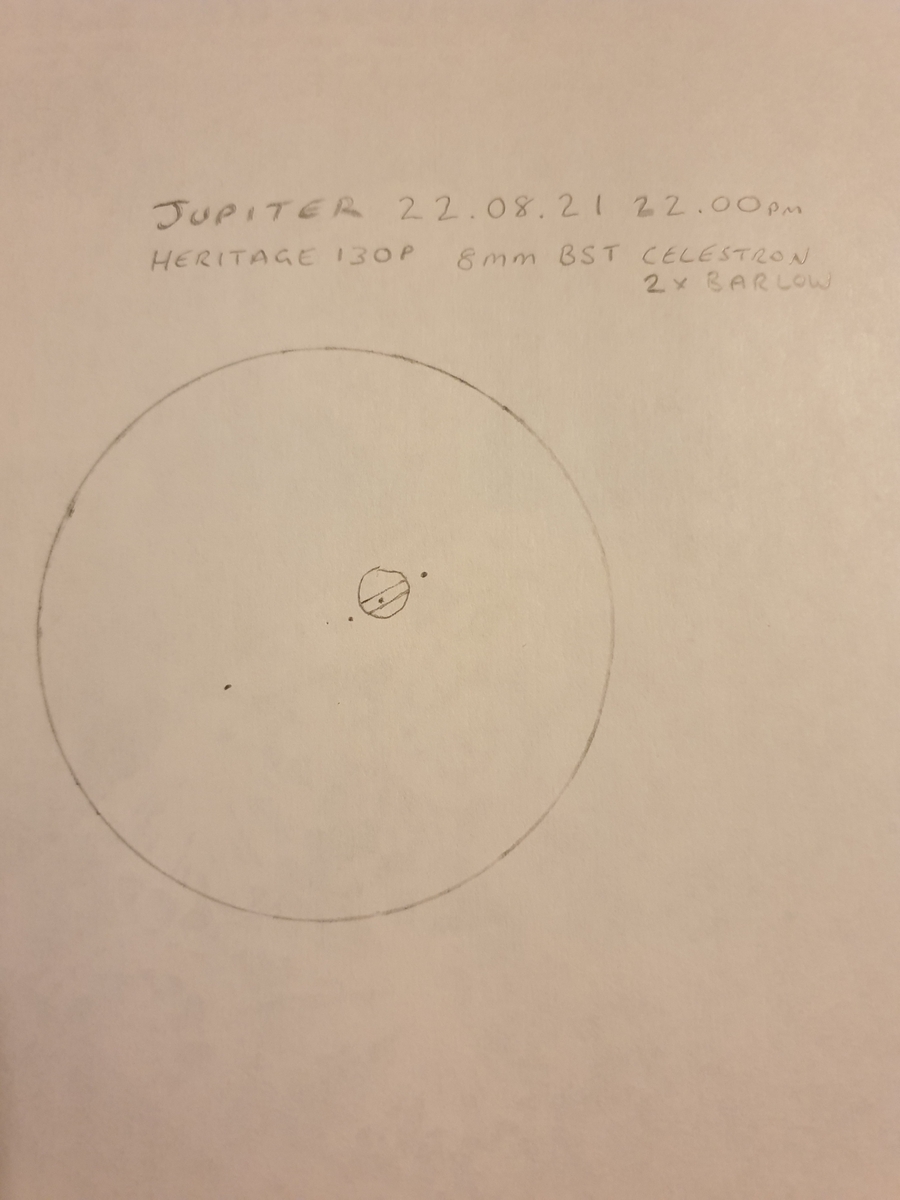 JUPITER 22.08.21 22.00PM
HERITAGE 130P 8mm BST CELESTRON
2x BARLOW